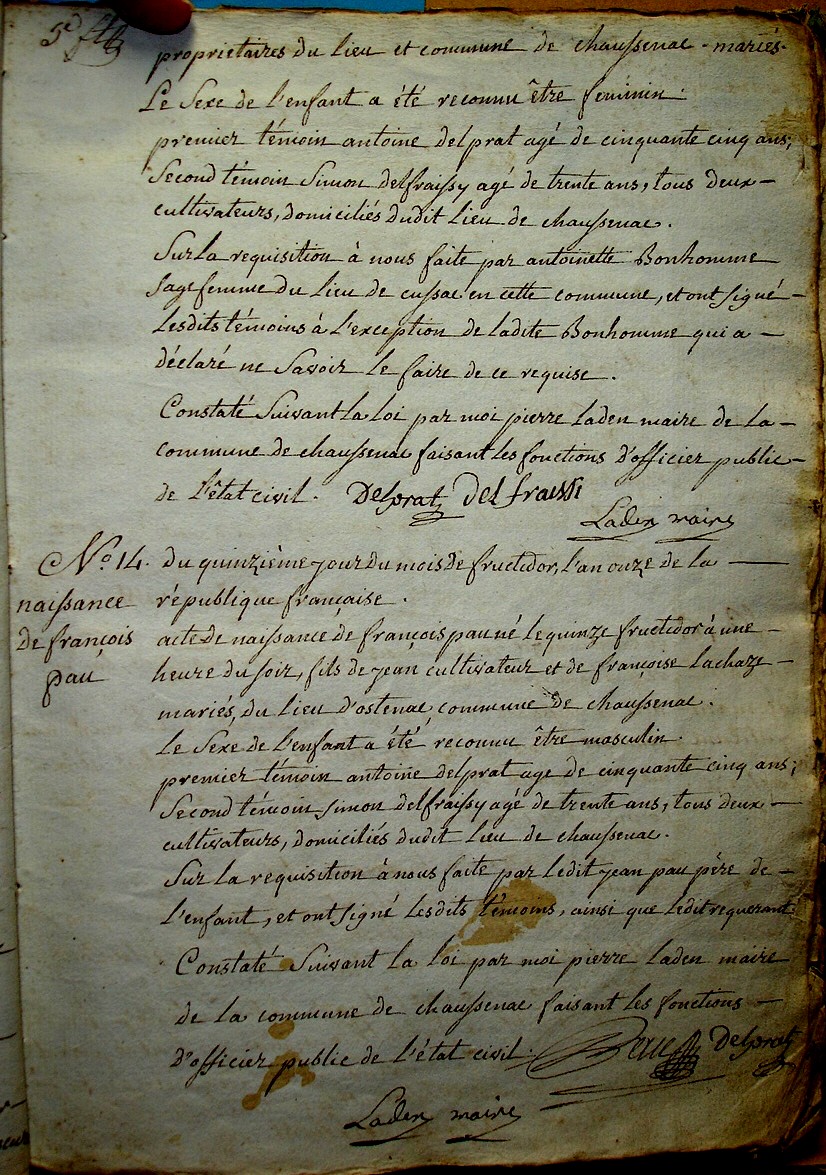 5e
proprietaires du lieu et commune de chaussenac - mariés.
Le Sexe de l'enfant a été reconnu être feminin.
premier témoin antoine delprat agé de cinquante cinq ans;
Second témoin Simon delfraissy agé de trente ans, tous deux -
cultivateurs, domiciliés dudit Lieu de chaussenac.
Sur la requisition à nous faite par antoinette Bonhomme
sage femme du Lieu de cussac en cette commune, et ont signé -
Lesdits témoins à L'exception de Ladite Bonhomme qui a -
déclaré ne Savoir le faire de ce requise.
Constaté Suivant la loi par moi pierre Laden maire de La -
commune de chaussenac faisant les fonctions d'officier public -
de l'état civil. Delprat delfraissi
Laden maire
No. 14. du quinzième jour du mois de fructidor, l'an onze de la —
naissance république française.
de françois acte de naissance de françois pau né le quinze fructidor à une -
pau heure du soir, fils de jean cultivateur et de françoise Lachaze -
mariés, du Lieu d'ostenac commune de chaussenac.
Le Sexe de l'enfant a été reconnu être masculin.
premier témoin antoine delprat age de cinquante cinq ans;
Second témoin simon delfraissy agé de trente ans, tous deux -
cultivateurs, domiciliés dudit Lieu de chaussenac.
Sur la requisition à nous faite par ledit jean pau père de -
l'enfant, et ont signé Lesdits témoins, ainsi que ledit requerant
Constaté Suivant la loi par moi pierre Laden maire
de la commune de chaussenac faisant les fonctions -
d'officier public de l'état civil. Delprat
Laden maire